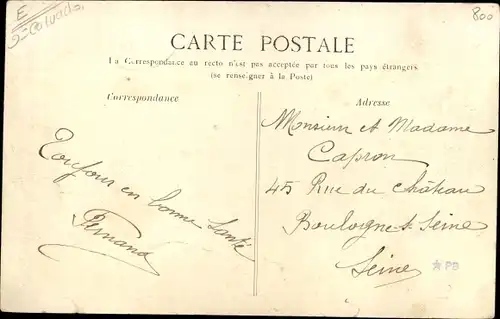 E
Calvados
800
CARTE POSTALE
La Correspondance au recto n'est pas acceptée par tous les pays étrangers
(se renseigner à la Poste)
Correspondance
Toujours en bonne santé
Fernand
Adresse
Monsieur et Madame
Capron
45 Rue du Château
Boulogne s. Seine
Seine
PB